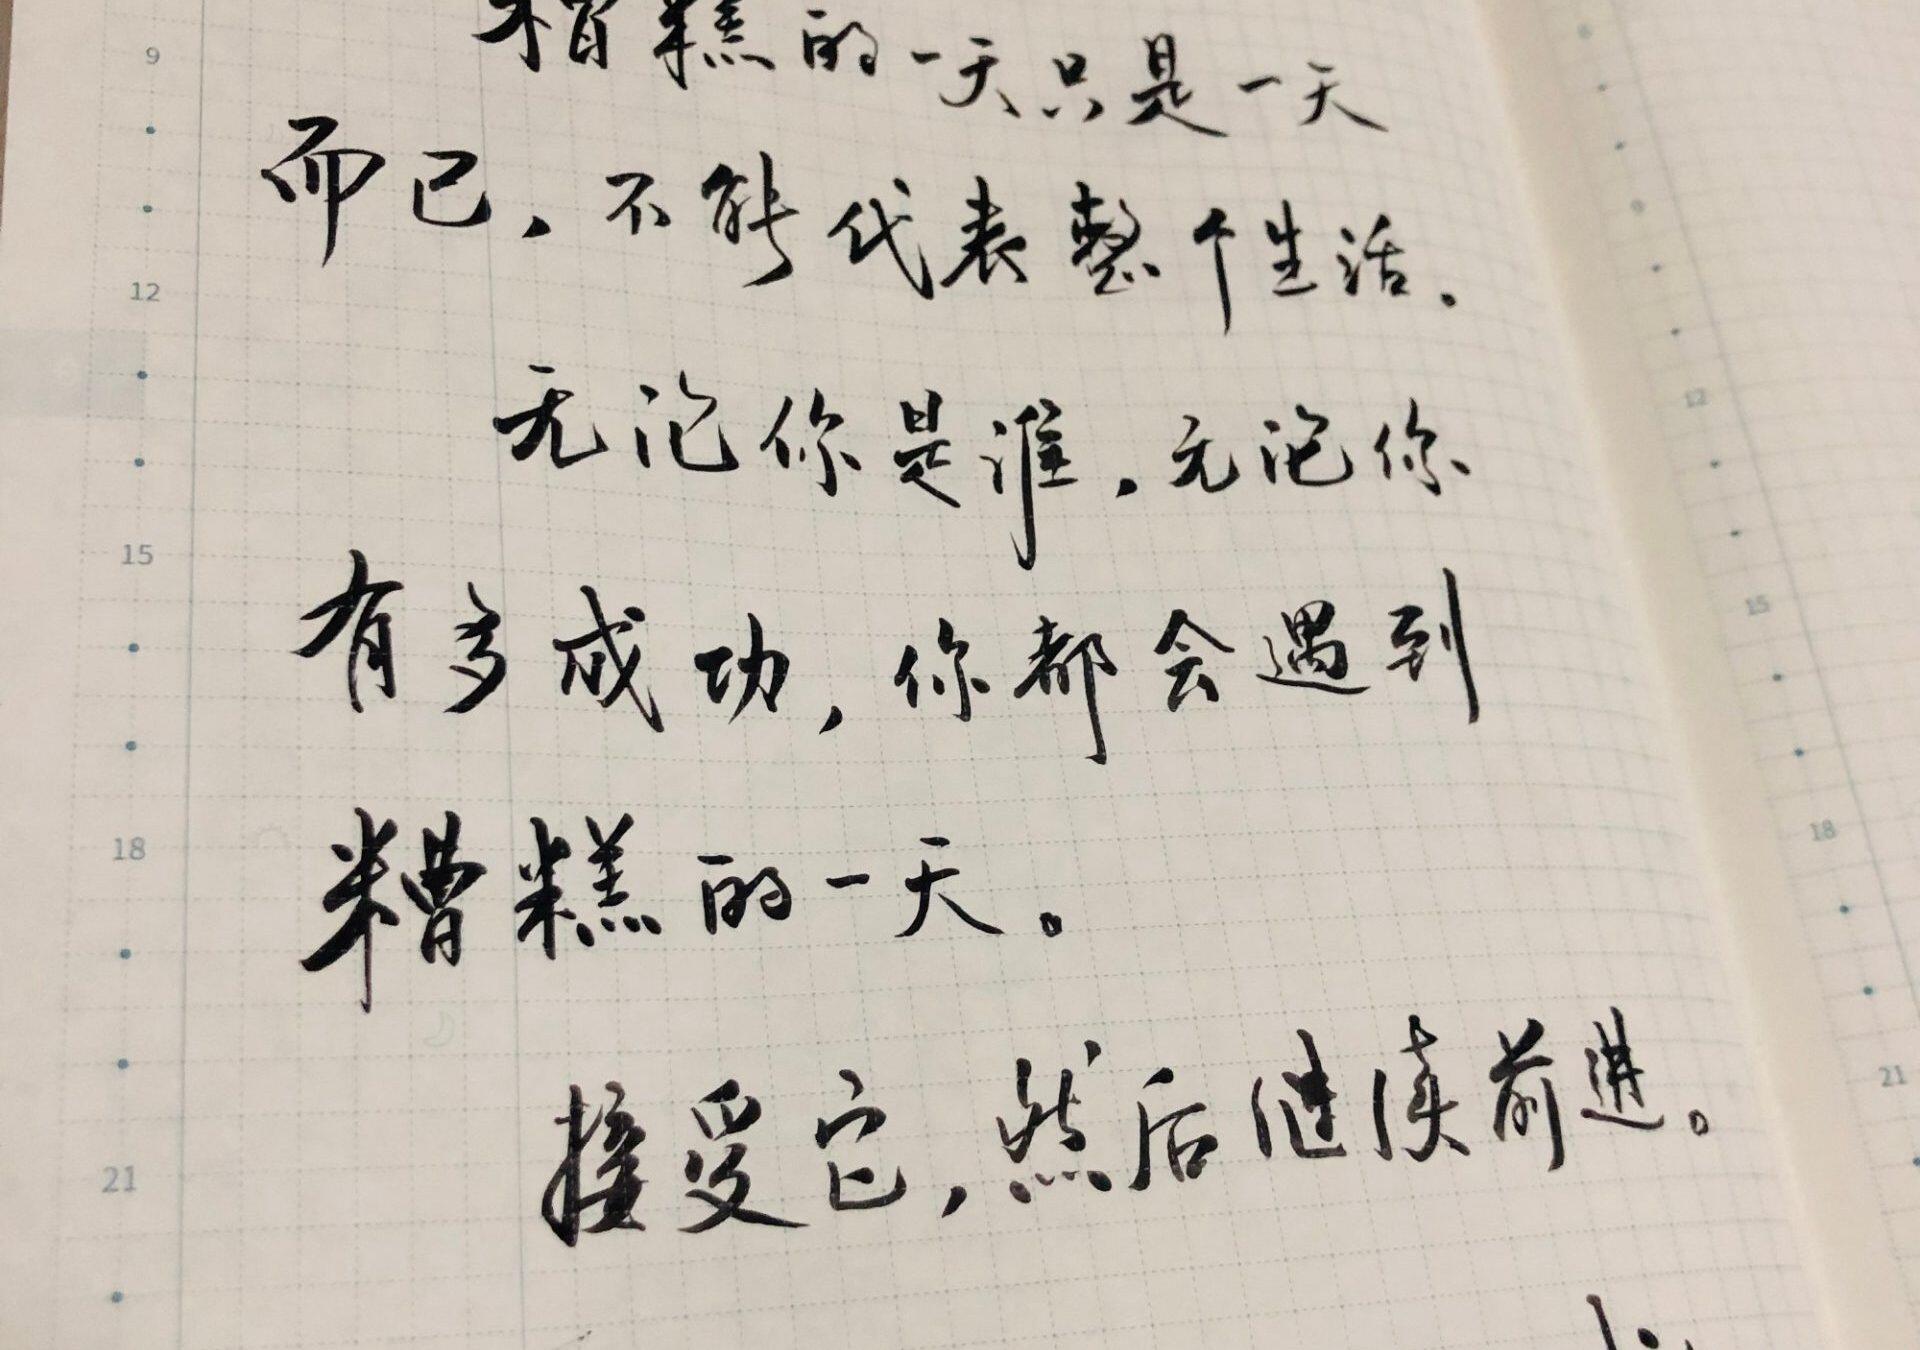 糟糕的一天只是一天
而已，不能代表整个生活.
无论你是谁，无论你
有多成功，你都会遇到
糟糕的一天。
接受它，然后继续前进。
9
12
15
18
21
12
15
18
21